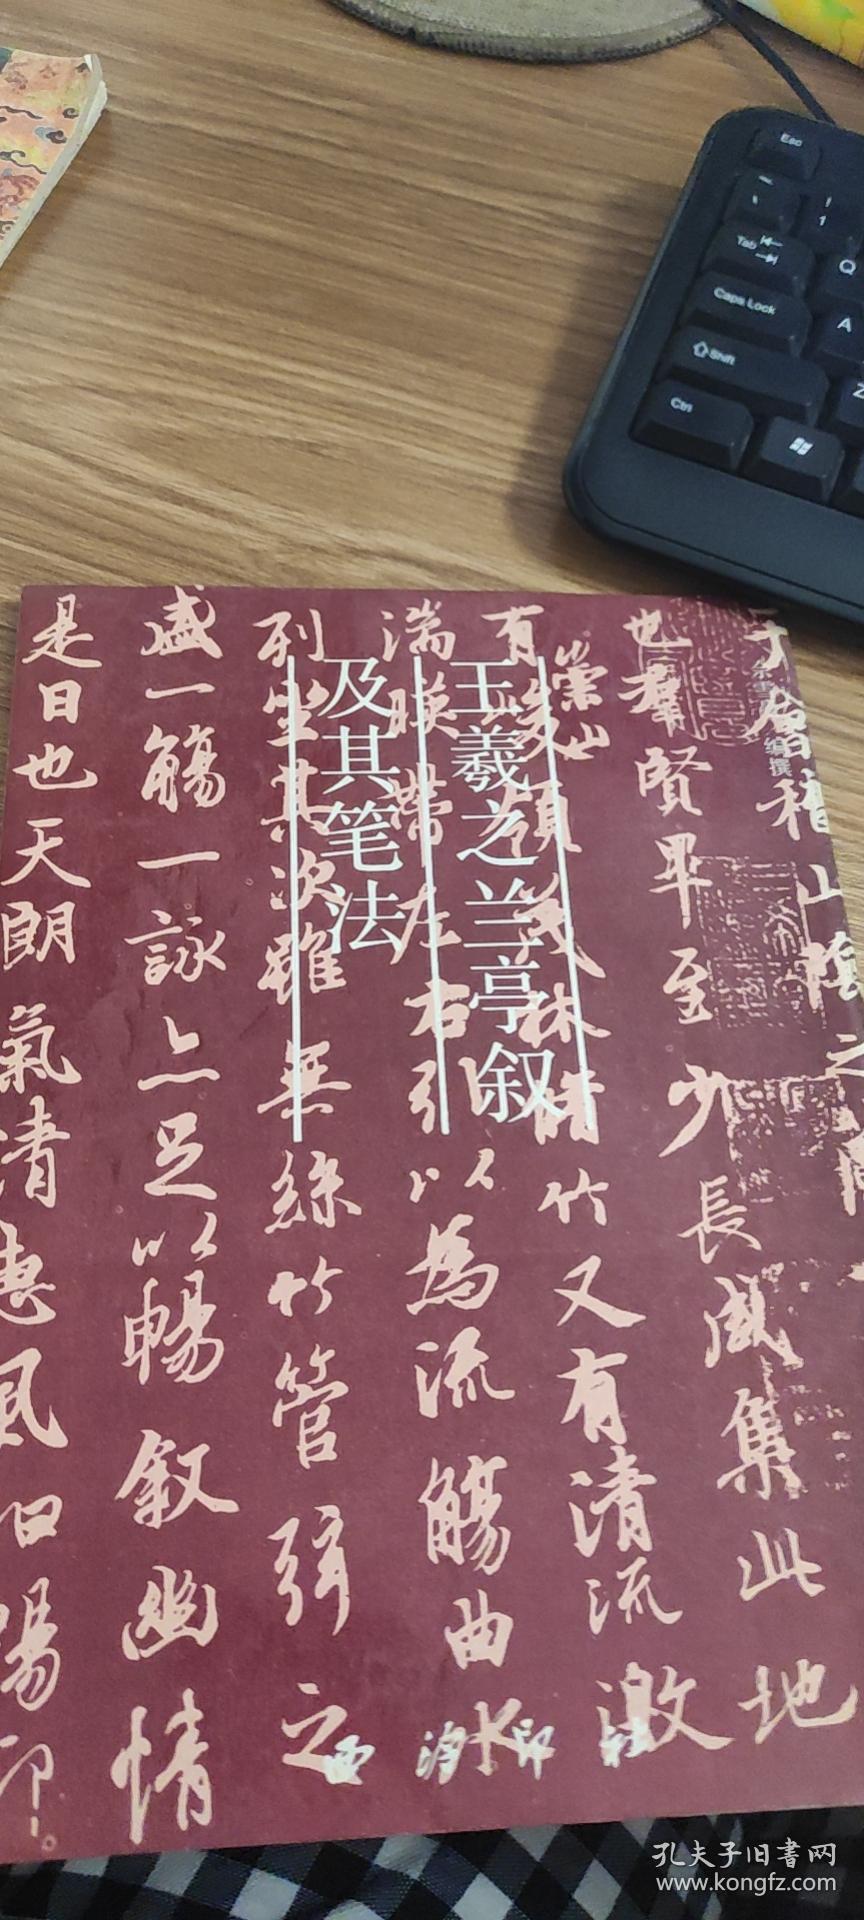 王羲之兰亭叙
及其笔法
编撰
于会稽山陰之
也羣賢畢至少長咸集此地
有崇山
領茂林脩竹又有清流激
湍暎帶左右引以為流觴曲水
列坐其次雖無絲竹管弦之
盛一觴一詠亦足以暢叙幽情
是日也天朗氣清惠風和暢仰
西泠印社
Esc
Tab
Caps Lock
Shift
Ctrl
!
1
Q
A
Z
孔夫子旧书网
www.kongfz.com